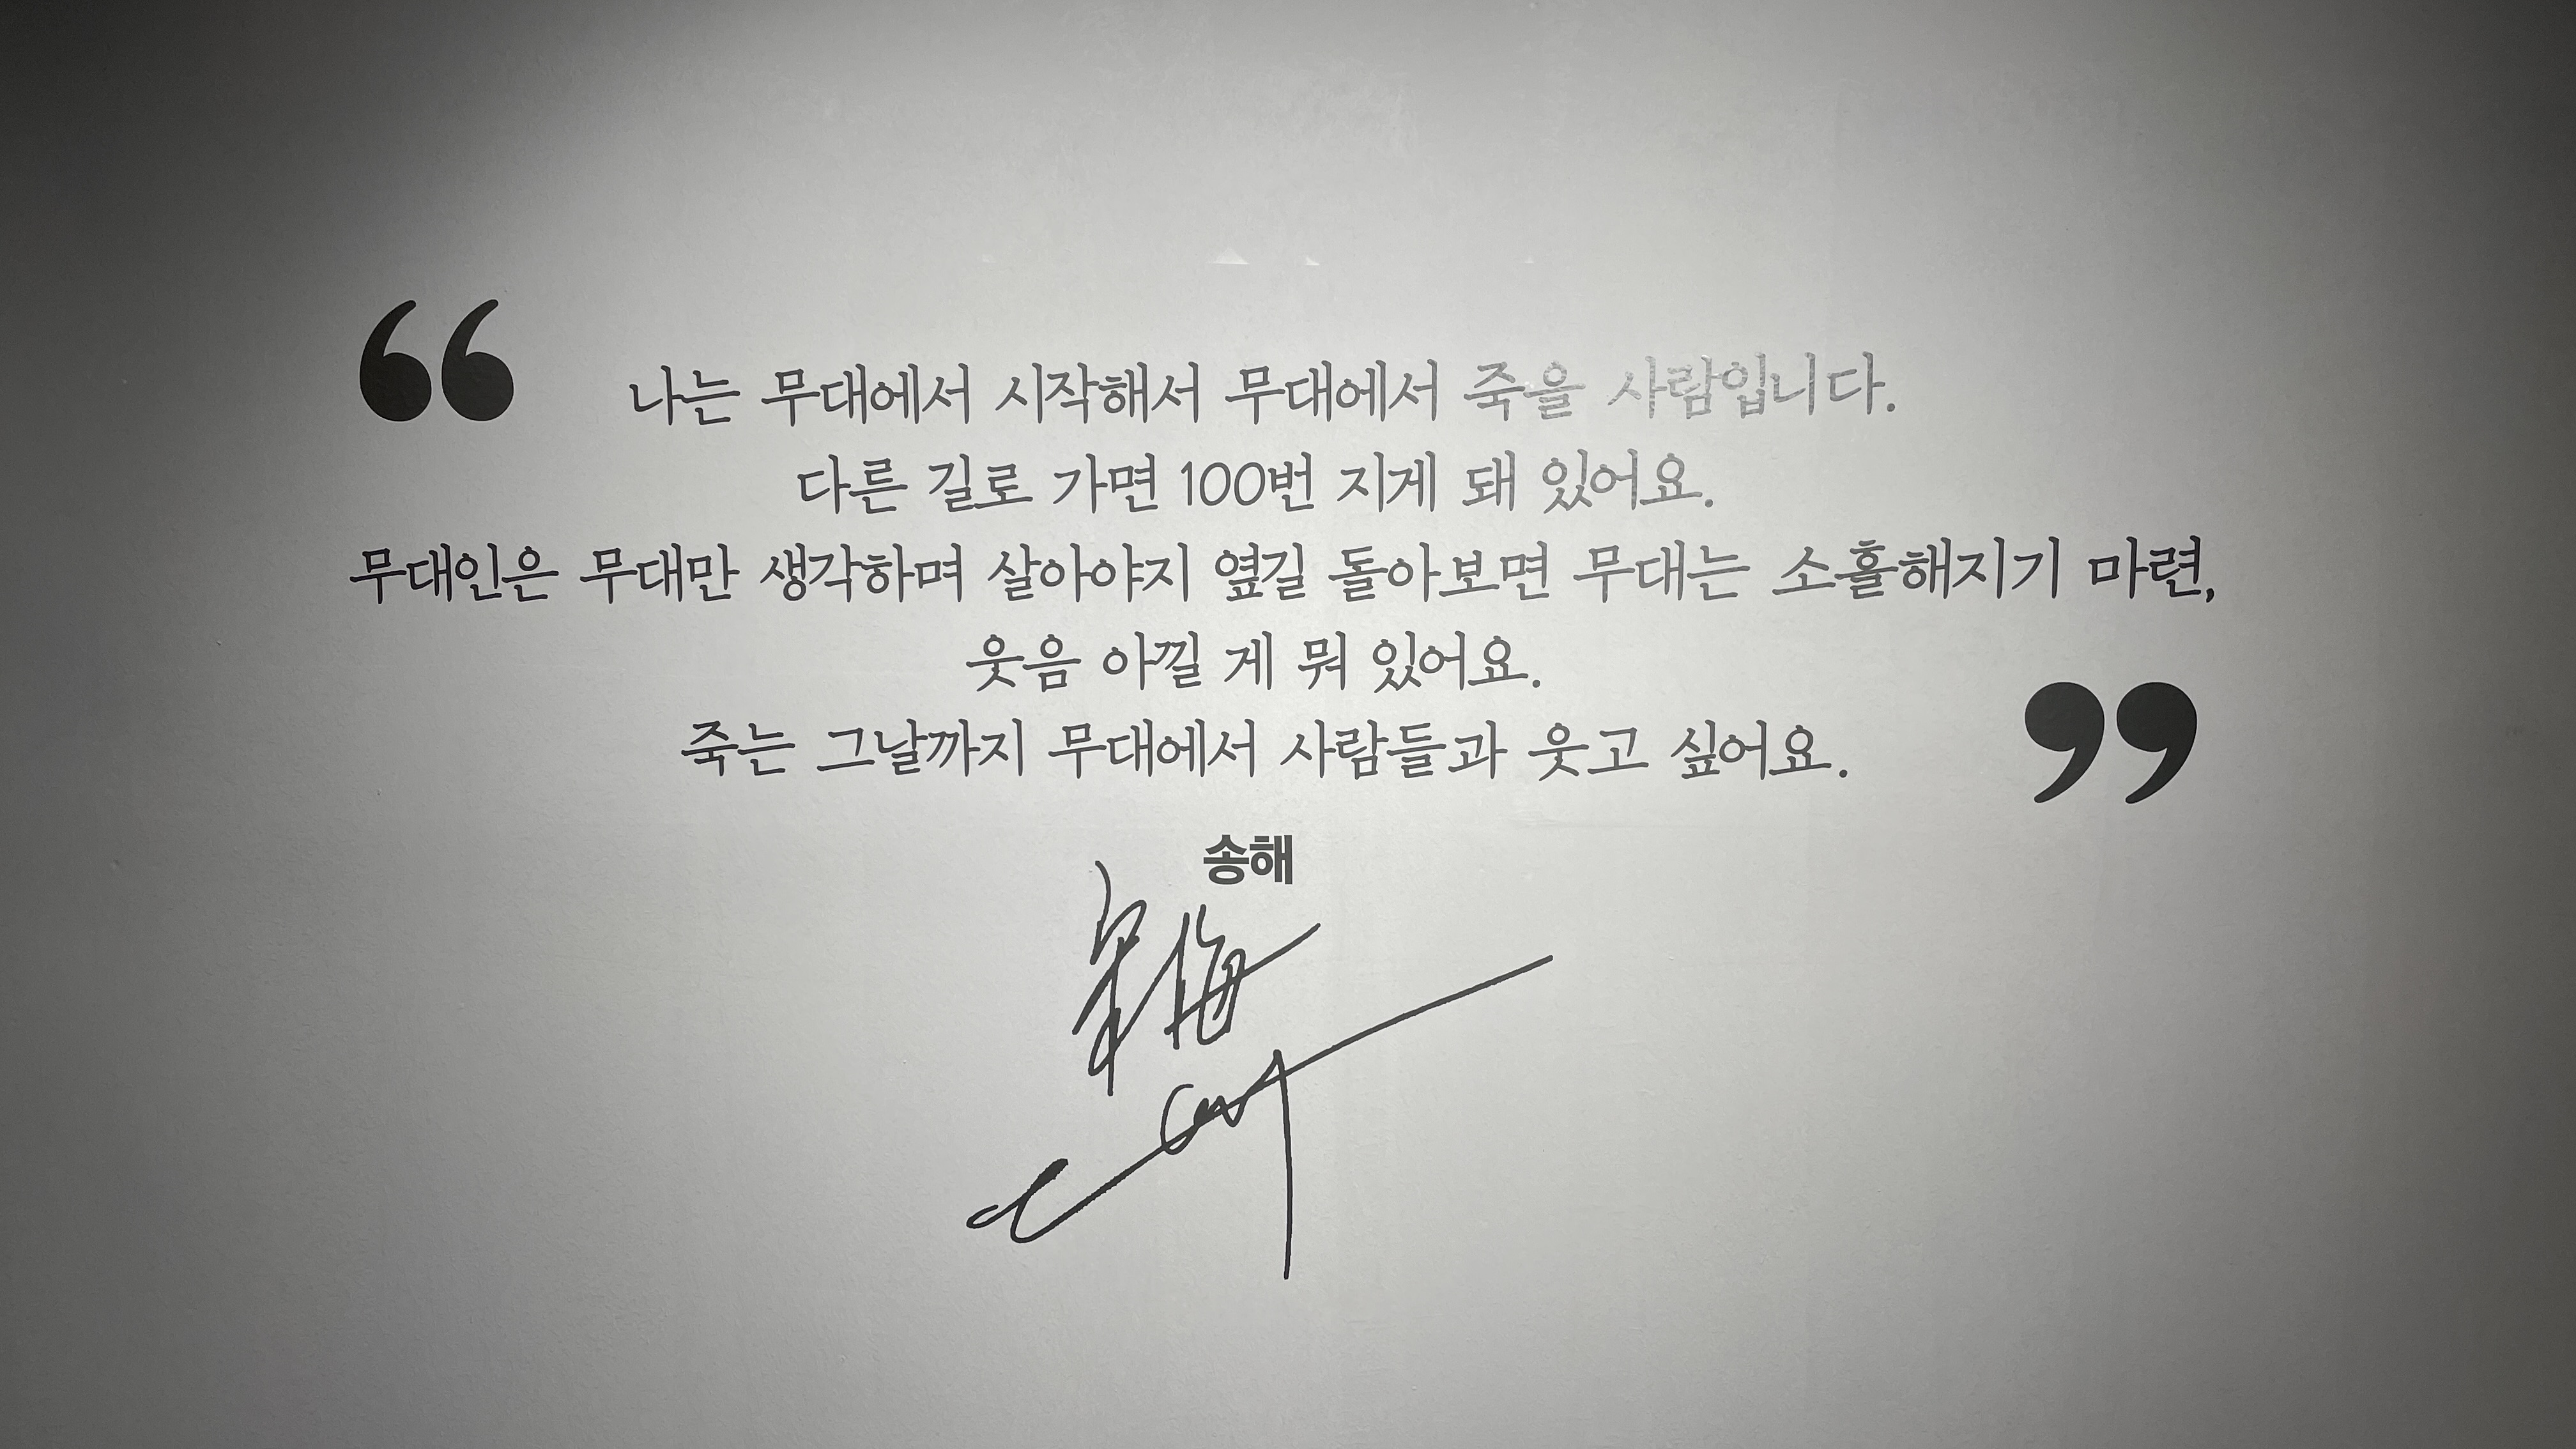 “ 나는 무대에서 시작해서 무대에서 죽을 사람입니다.
다른 길로 가면 100번 지게 돼 있어요.
무대인은 무대만 생각하며 살아야지 옆길 돌아보면 무대는 소홀해지기 마련,
웃음 아낄 게 뭐 있어요.
죽는 그날까지 무대에서 사람들과 웃고 싶어요. ”
송해